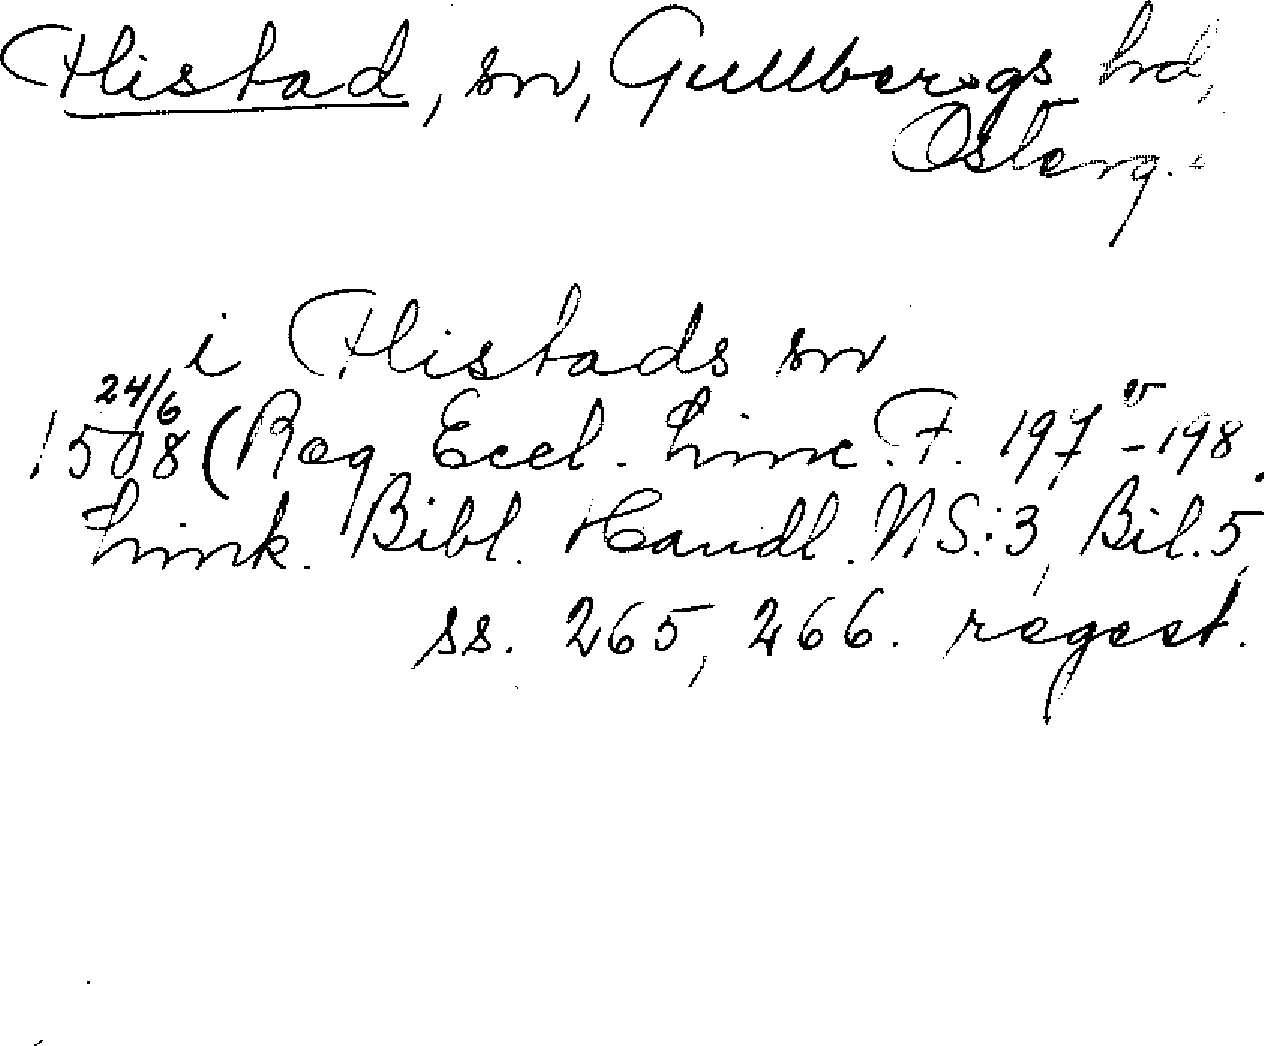 Flistad, sn, Gullbergs hd,
Österg.
i Flistads sn
24/6
1508 (Reg. Eccl. Linc. F. 197v-198.
Link. Bibl. Handl. NS:3, Bil. 5,
ss. 265, 266. regest.